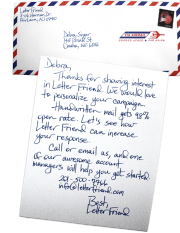 Letter Friend
Debra Singer
Debra,
Thanks for showing interest
in Letter Friend. We would love
to personalize your campaign.
Handwritten mail gets 99%
open rate. Let's see how
Letter Friend can increase
your response.
Call or email us, and one
of our awesome account
managers will help you get started.
info@letterfriend.com
Best,
Letter Friend